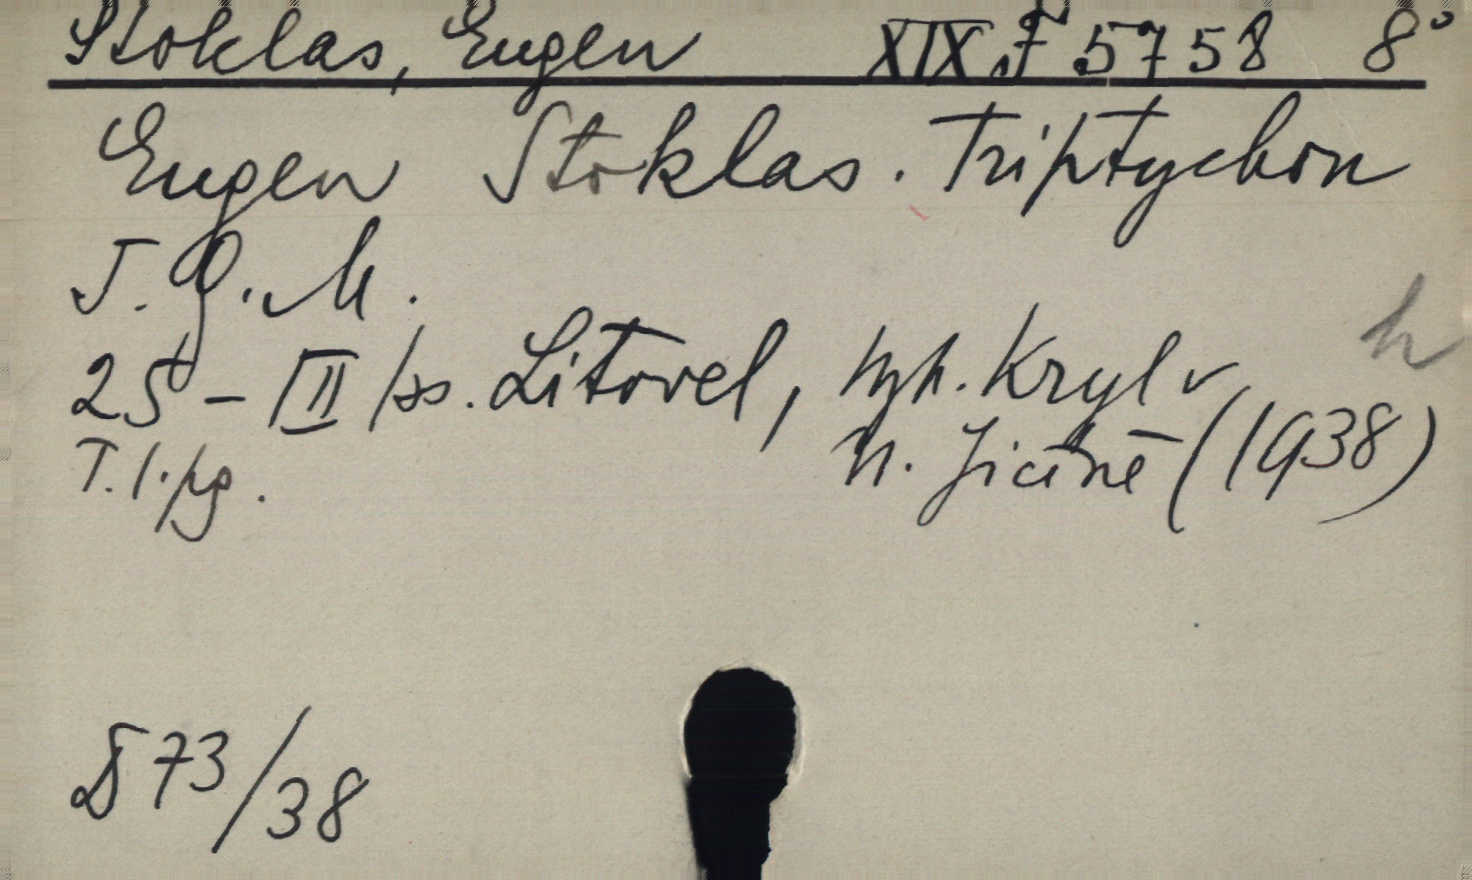 Stoklas, Eugen XIX.F 5758 8°
Eugen Stoklas. Triptychon
T.G.M.
25 - III /ss. Litovel, typl. Kryl v
T. 1. pg. N. Jičíně (1938)
h
D 73/38